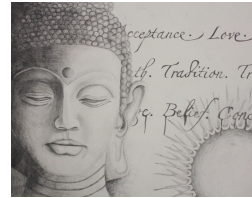 cceptance. Love.
th. Tradition. Tr
g. Belief. Conc